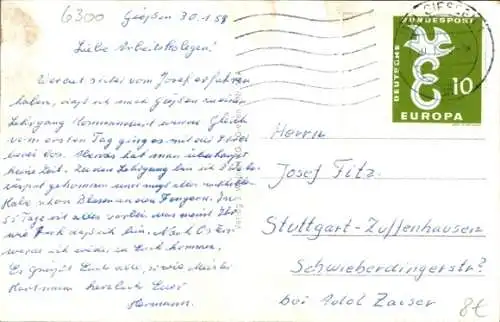 6300 Gießen 30.1.59
Liebe Arbeitskollegen!
Vorerst sicher vom Josef erfahren
haben, daß ich nach Gießen zu einem
Lehrgang kommandiert wurde. Gleich
vom ersten Tag ging es mit der
los. Abends hat man überhaupt
keine Zeit. Zu dem Lehrgang bin ich
gekommen und muß alles nachholen
Habe schon Blasen an den Fingern. In
55 Tage ist alles vorbei, was meint Ihr
wie froh daß ich bin. Nach Ostern
werde ich wieder zu Euch kommen.
Es grüßt Euch alle, sowie Meister
Hartmann herzlichst Euer
Hermann.
GIESSEN
DEUTSCHE BUNDESPOST
10
EUROPA
Herrn
Josef Fitz.
Stuttgart-Zuffenhausen
Schwieberdingerstr?
bei Adolf Zaiser
8€